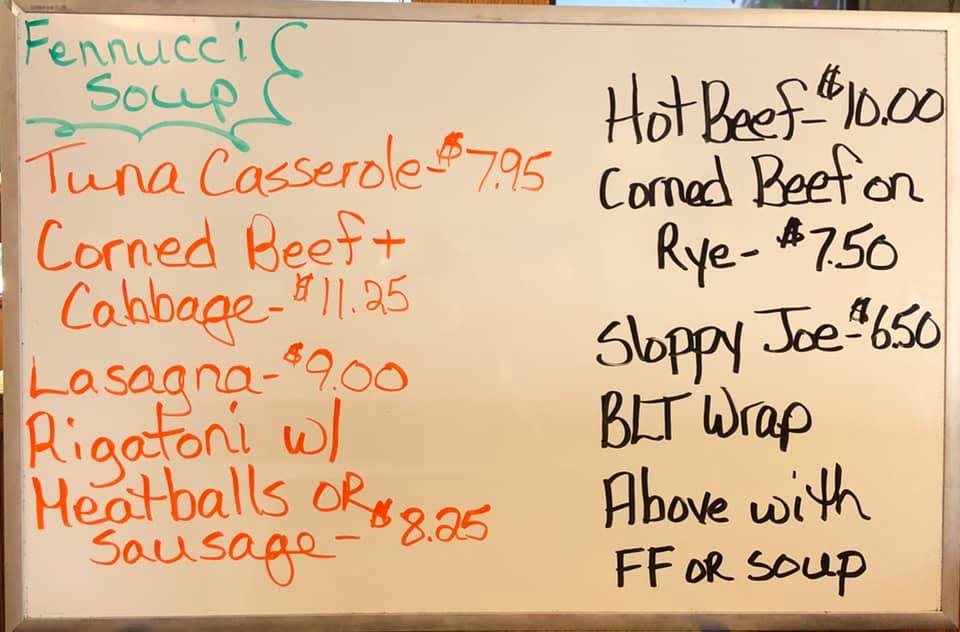 Fennucci
Soup
Tuna Casserole-$7.95
Corned Beef +
Cabbage-$11.25
Lasagna-$9.00
Rigatoni w/
Meatballs OR
sausage-$8.25
Hot Beef-$10.00
Corned Beef on
Rye-$7.50
Sloppy Joe-$6.50
BLT Wrap
Above with
FF OR soup